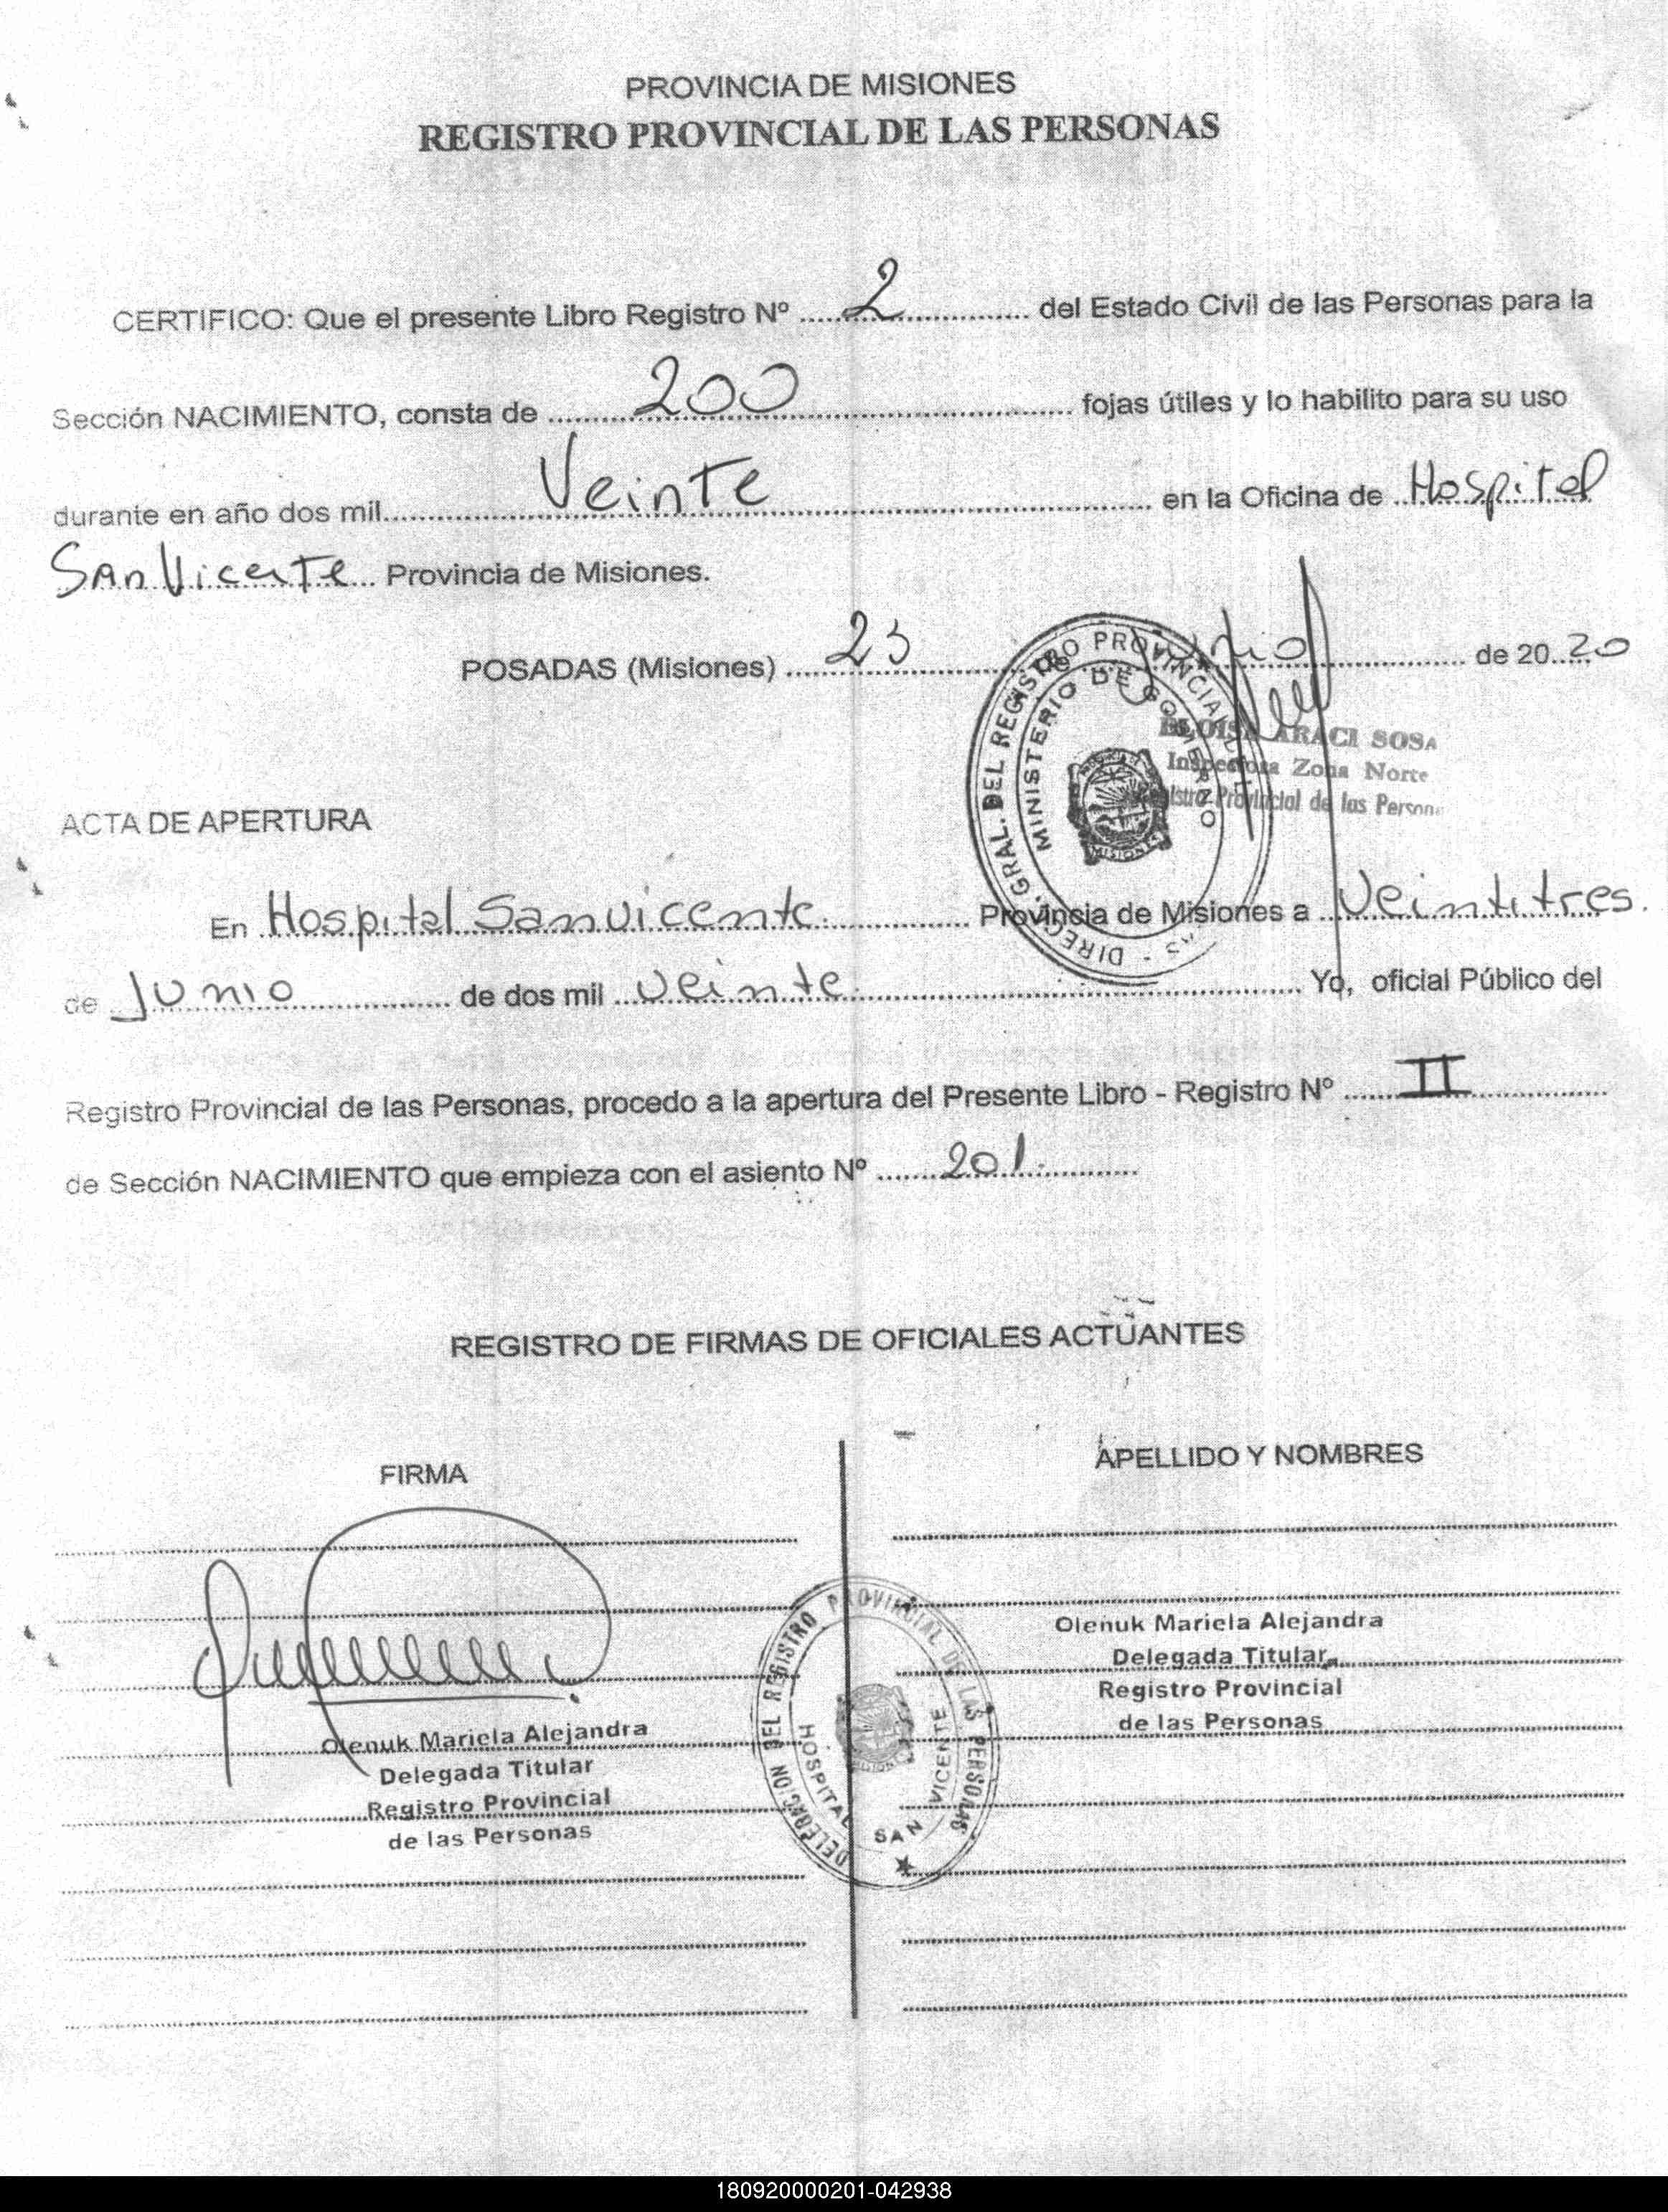 PROVINCIA DE MISIONES
REGISTRO PROVINCIAL DE LAS PERSONAS
CERTIFICO: Que el presente Libro Registro Nº 2 del Estado Civil de las Personas para la
Sección NACIMIENTO, consta de 200 fojas útiles y lo habilito para su uso
durante en año dos mil Veinte en la Oficina de Hospital
San Vicente Provincia de Misiones.
POSADAS (Misiones) 23 de Junio de 2020
DIREC. GRAL. DEL REGISTRO PROVINCIAL
MINISTERIO DE GOBIERNO
MISIONES
ELOISA ARACI SOSA
Inspectora Zona Norte
Registro Provincial de las Personas
ACTA DE APERTURA
En Hospital San vicente. Provincia de Misiones a Veintitres.
de Junio de dos mil veinte. Yo, oficial Público del
Registro Provincial de las Personas, procedo a la apertura del Presente Libro - Registro Nº II
de Sección NACIMIENTO que empieza con el asiento Nº 201.
REGISTRO DE FIRMAS DE OFICIALES ACTUANTES
FIRMA
APELLIDO Y NOMBRES
Olenuk Mariela Alejandra
Delegada Titular
Registro Provincial
de las Personas
DELEGACION DEL REGISTRO PROVINCIAL DE LAS PERSONAS
HOSPITAL SAN VICENTE
Olenuk Mariela Alejandra
Delegada Titular
Registro Provincial
de las Personas
180920000201-042938